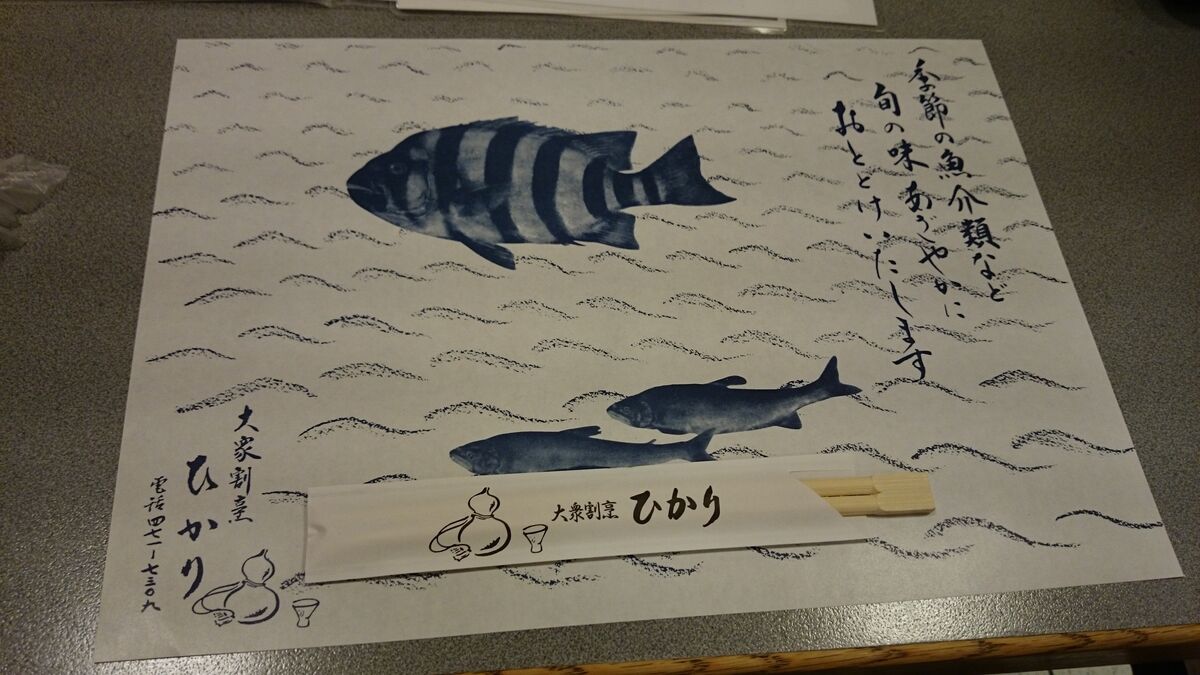 季節の魚介類など
旬の味あざやかに
おとどけいたします
大衆割烹
ひかり
電話四七一ー七三〇九
大衆割烹 ひかり